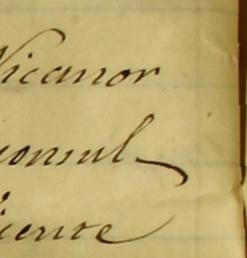 Nicanor
consul
icente